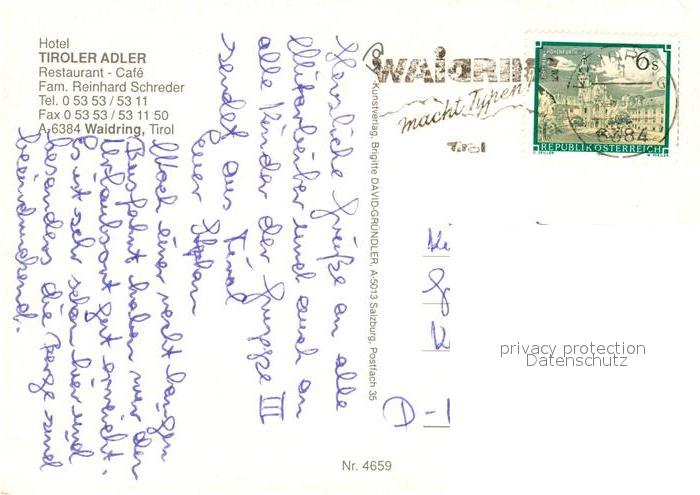 Hotel
TIROLER ADLER
Restaurant - Café
Fam. Reinhard Schreder
Tel. 0 53 53 / 53 11
Fax 0 53 53 / 53 11 50
A-6384 Waidring, Tirol
Herzliche Grüße an alle
Mitarbeiter und auch an
alle Kinder der Gruppe III
sendet aus Tirol
euer Stefan
Nach einer recht langen
Busfahrt haben wir den
Urlaubsort gut erreicht.
Es ist sehr schön hier und
besonders die Berge sind
beeindruckend.
Kunstverlag, Brigitte DAVID-GRÜNDLER, A-5013 Salzburg, Postfach 35
WAIDRING
macht Typen!
Tirol
6s
6384
REPUBLIK ÖSTERREICH
Ki
privacy protection
Datenschutz
Nr. 4659